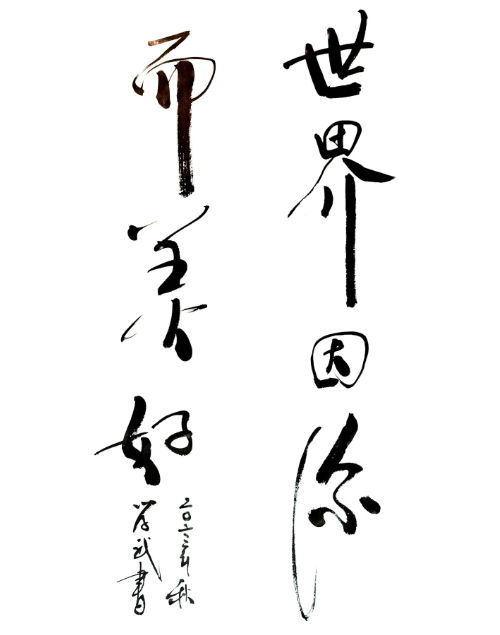 世界因你
而美好
二〇二三年秋
学武書